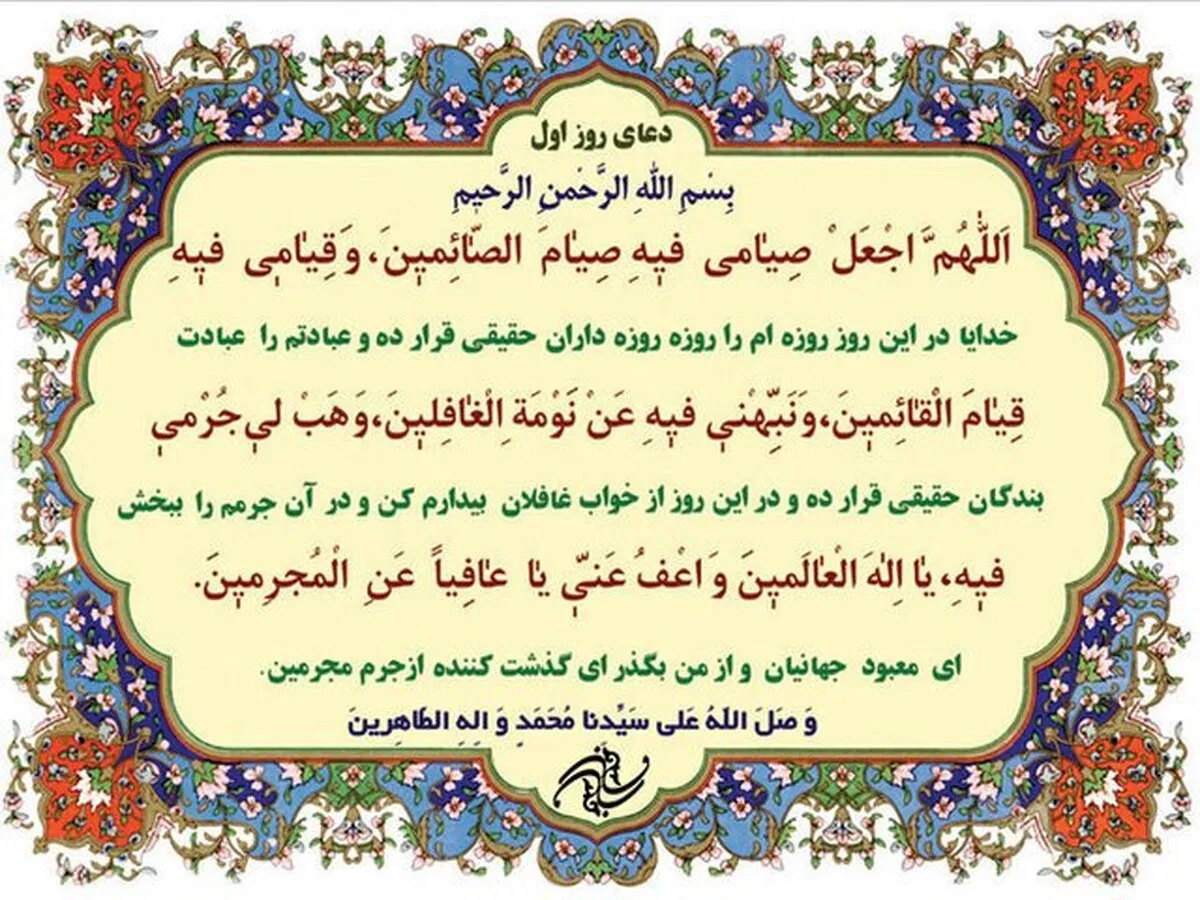 دعای روز اول
بِسْمِ اللهِ الرَّحْمنِ الرَّحیمِ
اَللّٰهُمَّ اجْعَلْ صِیٰامی فیٖهِ صِیٰامَ الصّٰائِمیٖنَ، وَ قِیٰامیٖ فیٖهِ
خدایا در این روز روزه ام را روزه روزه داران حقیقی قرار ده و عبادتم را عبادت
قِیٰامَ الْقٰائِمیٖنَ، وَ نَبِّهْنیٖ فیٖهِ عَنْ نَوْمَةِ الْغٰافِلیٖنَ، وَ هَبْ لیٖ جُرْمیٖ
بندگان حقیقی قرار ده و در این روز از خواب غافلان بیدارم کن و در آن جرمم را ببخش
فیٖهِ، یٰا اِلٰهَ الْعٰالَمیٖنَ وَ اعْفُ عَنیّٖ یٰا عٰافِیاً عَنِ الْمُجرِمیٖنَ.
ای معبود جهانیان و از من بگذر ای گذشت کننده ازجرم مجرمین.
وَ صَلَ اللّهُ عَلی سَیِّدِنا مُحَمَدٍ وَ الِهِ الطّاهِرینَ